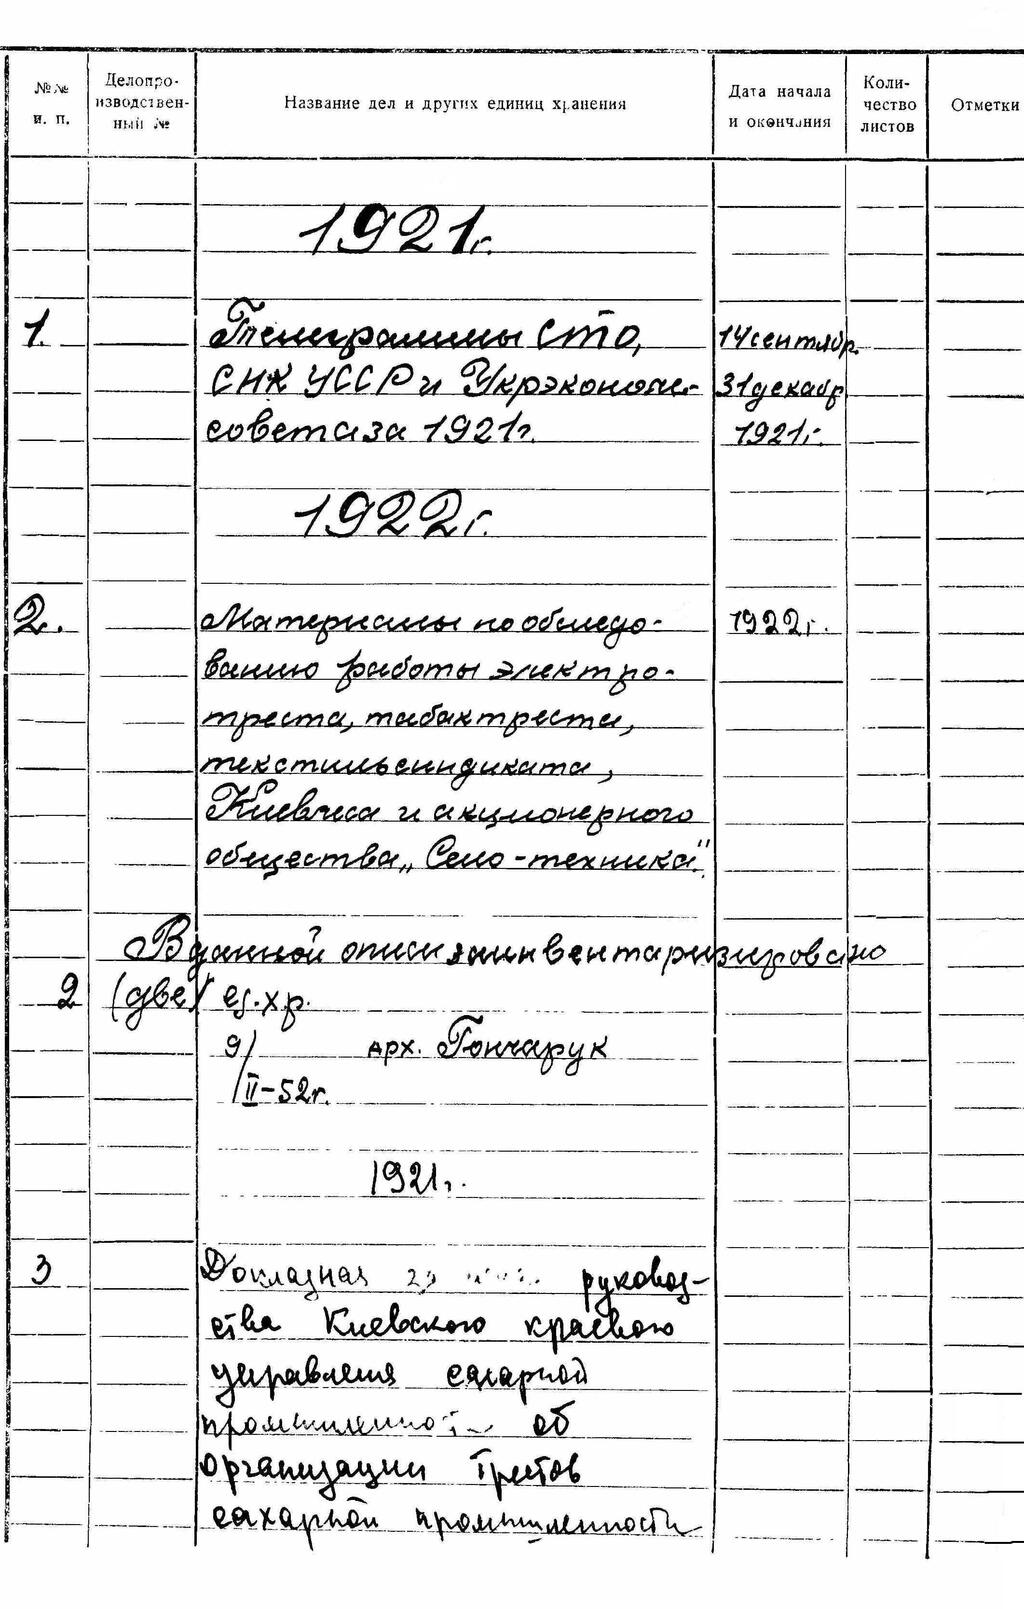 №№ и. п.
Делопро-
изводствен-
ный №
Название дел и других единиц хранения
Дата начала
и окончания
Коли-
чество
листов
Отметки
1921г.
1. Телеграммы СТО, 14 сентябр.
СНК УССР и Укрэконом- 31 декабр
совета за 1921г. 1921г.
1922г.
2. Материалы по обследо- 1922г.
ванию работы электро-
треста, табактреста,
текстильсиндиката,
Киевчса и акционерного
общества „Село-техника".
В данной описи заинвентаризировано
2 (две) ед.хр.
9/ арх. Гончарук
II-52г.
1921г.
3 Докладная руковод-
ства Киевского краевого
управления сахарной
промышленност об
организации трестов
сахарной промышленности